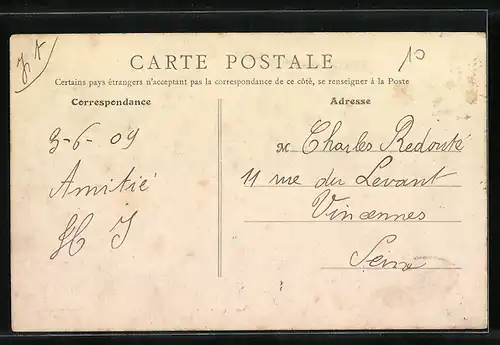 CARTE POSTALE
10
Certains pays étrangers n'acceptant pas la correspondance de ce côté, se renseigner à la Poste
Correspondance
Adresse
3-6-09
Amitié
M Charles Redouté
11 rue du Levant
Vincennes
Seine